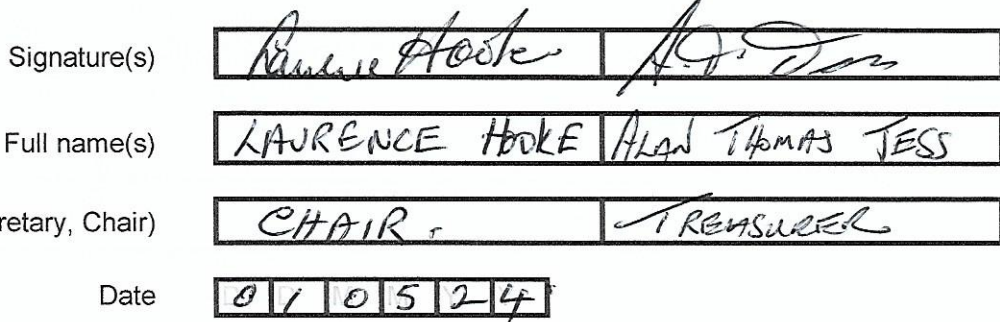 Signature(s) Laurence Hooke A.T. Jess
Full name(s) LAURENCE HOOKE ALAN THOMAS JESS
retary, Chair) CHAIR. TREASURER
Date 010524